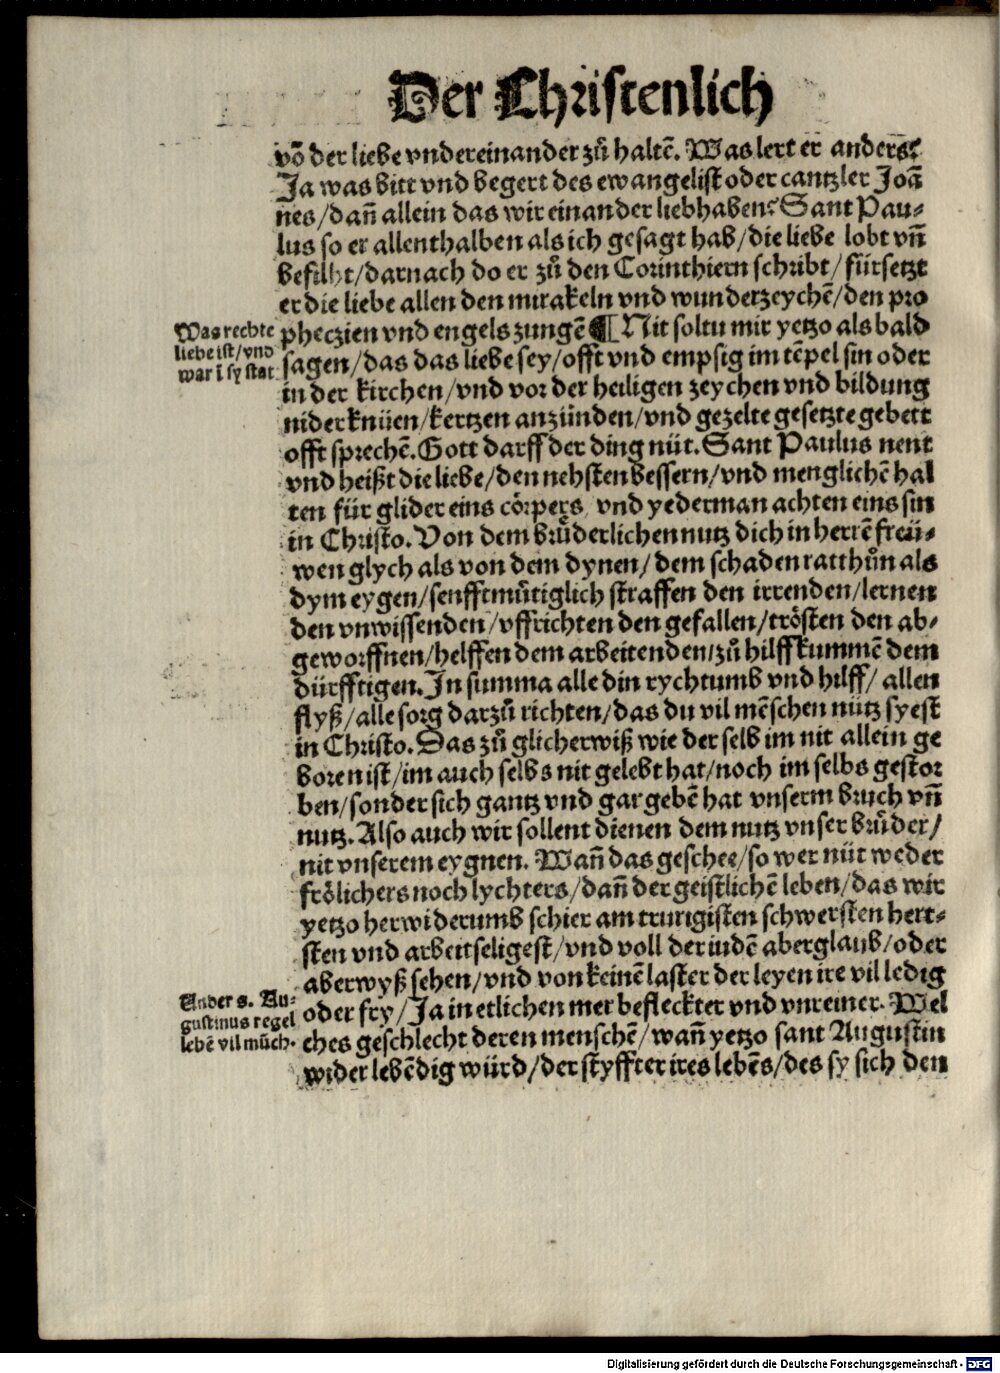 Der Christenlich
vō der liebe vndereinander zů haltē. Was lert er anders?
Ja was bitt vnd begert des ewangelist oder cantzler Joā
nes/dañ allein das wir einander liebhaben? Sant Pau⸗
lus so er allenthalben als ich gesagt hab/die liebe lobt vñ
befilht/darnach do er zů den Corinthiern schribt/fürsetzt
er die liebe allen den mirakeln vnd wunderzeychē/den pro
pheczien vnd engels zungē ¶ Nit soltu mir yetzo als bald
sagen/das das liebe sey/offt vnd empsig im tēpel sin oder
in der kirchen/vnd vor der heiligen zeychen vnd bildung
niderknüen/kertzen anzünden/vnd gezelte gesetzte gebett
offt sprechē. Gott darff der ding nüt. Sant Paulus nent
vnd heißt die liebe/den nehsten bessern/vnd menglichē hal
ten für glider eins cörpers, vnd yederman achten eins sin
in Christo. Von dem brůderlichen nutz dich in herrē freü⸗
wen glych als von dem dynen/dem schaden ratthůn als
dym eygen/senfftmůtiglich straffen den irrenden/lernen
den vnwissenden/vffrichten den gefallen/trösten den ab⸗
geworffnen/helffen dem arbeitenden/zů hilff kummē dem
dürfftigen. In summa alle din rychtumb vnd hilff/ allen
flyß/alle sorg darzů richten/das du vil mēschen nütz syest
in Christo. Das zů glicherwiß wie der selb im nit allein ge
boren ist/im auch selbs nit gelebt hat/noch im selbs gestor
ben/sonder sich gantz vnd gar gebē hat vnserm bruch vñ
nutz. Also auch wir sollent dienen dem nutz vnser brůder/
nit vnserem eygnen. Wañ das geschee/so wer nüt weder
frölichers noch lychters/dañ der geistlichē leben/das wir
yetzo herwiderumb schier am trurigisten schwersten hert⸗
sten vnd arbeitseligest/vnd voll der iudē aberglaub/oder
aberwyß sehen/vnd von keinē laster der leyen ire vil ledig
oder fry/Ja in etlichen mer befleckter vnd vnreiner. Wel
ches geschlecht deren menschē/wañ yetzo sant Augustin
wider lebēdig würd/der styffter ires lebēs/des sy sich den
Was rechte
liebe ist/vnd
war ī sy stat
Ander s. Au⸗
gustinus regel
lebē vil münch.
Digitalisierung gefördert durch die Deutsche Forschungsgemeinschaft - DFG